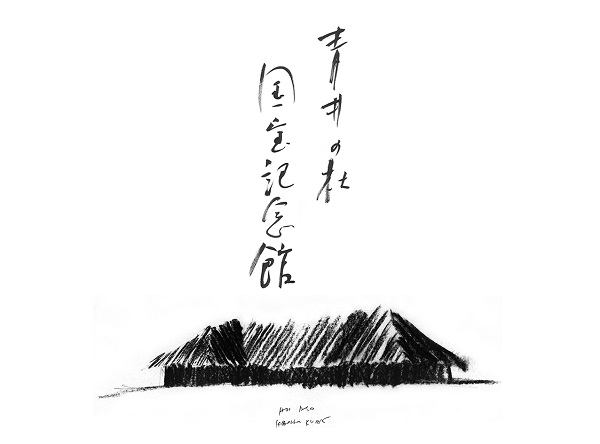 青井の杜
国宝記念館